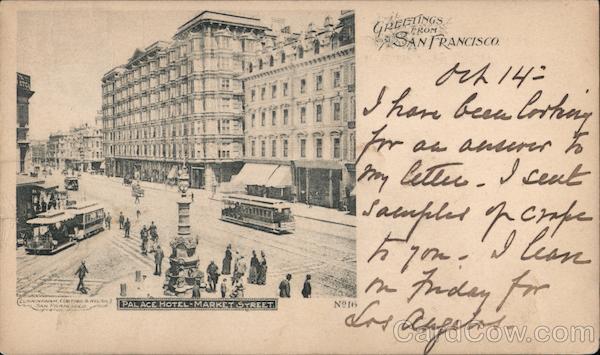 GREETINGS
FROM
SAN FRANCISCO.
Oct 14=
I have been looking
for an answer to
my letter - I sent
samples of crape
to you - I leave
on Friday for
Los Angeles.
CUNNINGHAM, CURTISS & WELCH,
SAN FRANCISCO.
PALACE HOTEL - MARKET STREET
No 16
CardCow.com